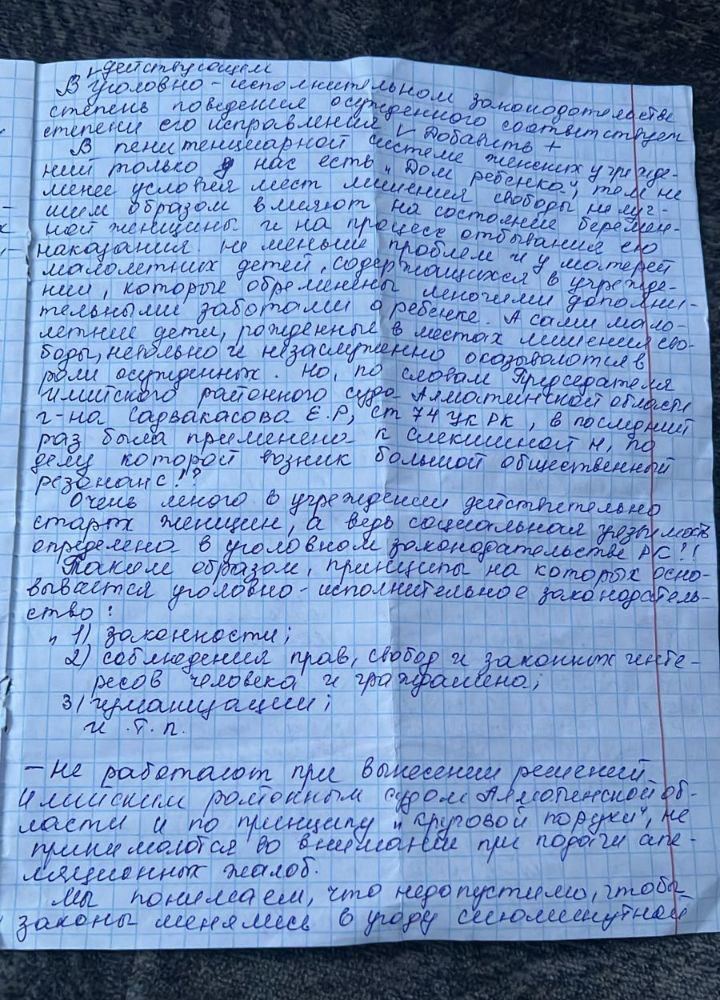 действующем
В уголовно-исполнительном законодательстве
степень поведения осужденного соответствует
степени его исправления V Добавить +
В пенитенциарной системе женских учрежде-
ний только у нас есть „Дом ребенка", тем не
менее условия мест лишения свободы не луч-
шим образом влияют на состояние беремен-
ной женщины и на процесс отбывания ею
наказания. не меньше проблем и у матерей
малолетних детей, содержащихся в учрежде-
нии, которые обременены многими дополни-
тельными заботами о ребенке. А сами мало-
летние дети, рожденные в местах лишения сво-
боды, невольно и незаслуженно оказываются в
роли осужденных. Но, по словам Председателя
Илийского районного суда Алматинской области
г-на Садвакасова Е.Р, ст 74 УК РК, в последний
раз была применена к Слекишиной Н, по
делу которой возник большой общественный
резонанс!?
Очень много в учреждении действительно
старых женщин, а ведь социальная уязвимость
определена в уголовном законодательстве РК?!
Таким образом, принципы на которых осно-
вывается уголовно-исполнительное законодатель-
ство:
„ 1) законности;
2) соблюдения прав, свобод и законных инте-
ресов человека и гражданина;
3) гуманизации;
и.т.п.
— не работают при вынесении решений
Илийским районным судом Алматинской об-
ласти и по принципу „круговой поруки", не
принимаются во внимание при подачи апе-
ляционных жалоб.
Мы понимаем, что недопустимо, чтобы
законы менялись в угоду сиюминутной